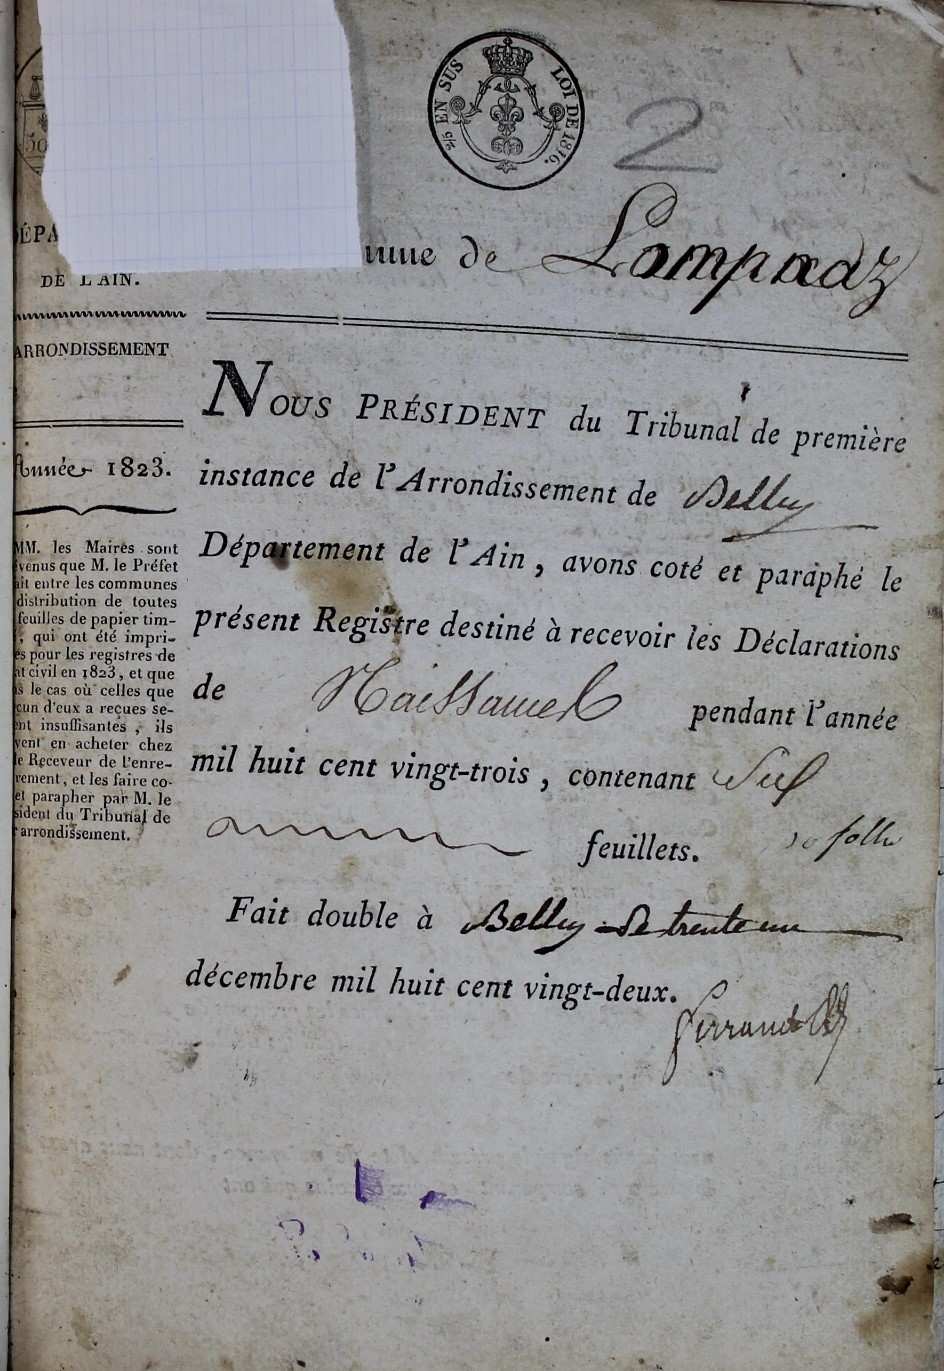 2/5 EN SUS LOI DE 1816.
2
50
ÉPA
DE L'AIN.
mune de Lompnaz
ARRONDISSEMENT
Année 1823.
MM. les Maires sont
venus que M. le Préfet
ait entre les communes
distribution de toutes
feuilles de papier tim-
, qui ont été impri-
es pour les registres de
at civil en 1823, et que
s le cas où celles que
cun d'eux a reçues se-
ent insuffisantes, ils
vent en acheter chez
le Receveur de l'enre-
rement, et les faire co-
et parapher par M. le
sident du Tribunal de
arrondissement.
NOUS PRÉSIDENT du Tribunal de première
instance de l'Arrondissement de Belley
Département de l'Ain, avons coté et paraphé le
présent Registre destiné à recevoir les Déclarations
de Naissances pendant l'année
mil huit cent vingt-trois, contenant Six
feuillets.
Fait double à Belley le trente un
décembre mil huit cent vingt-deux.